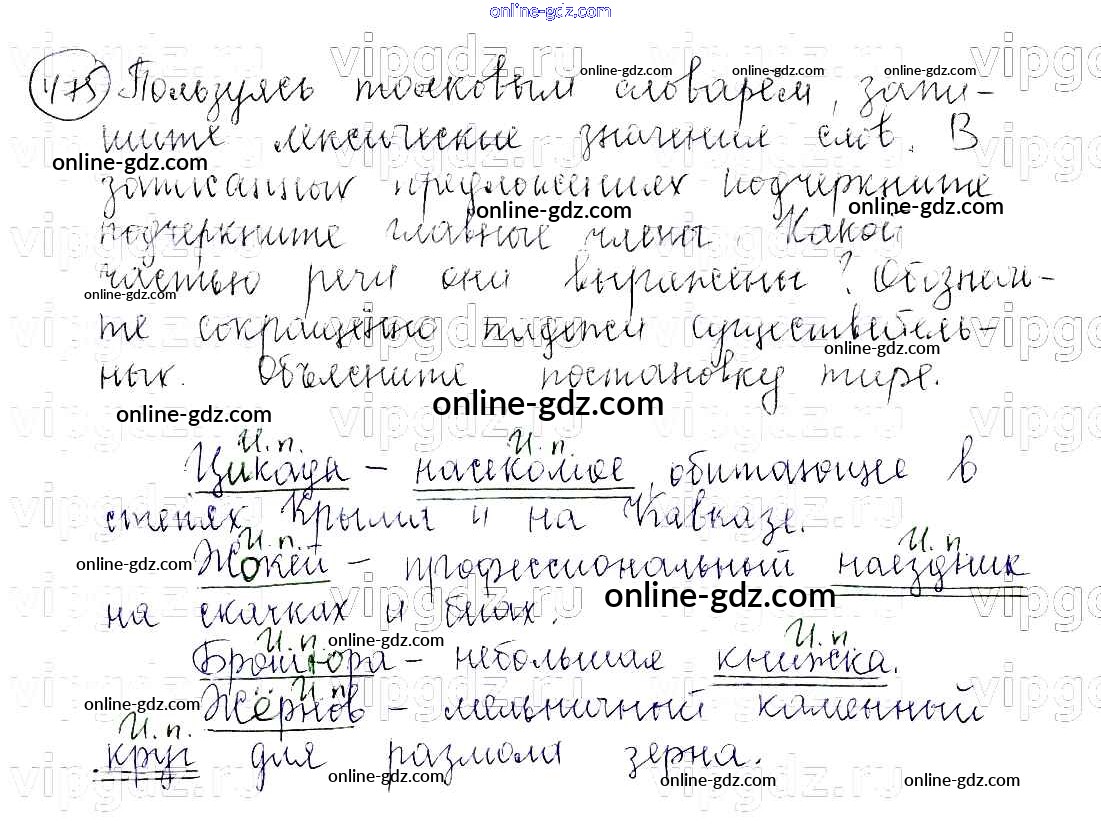 online-gdz.com
475 Пользуясь толковым словарём, запи-
шите лексические значения слов. В
записанных предложениях подчеркните
подчеркните главные члены. Какой
частью речи они выражены? Обозначи-
те сокращённо падежи существитель-
ных. Объясните постановку тире.
online-gdz.com
И.п. И.п.
Цикада – насекомое, обитающее в
степях Крыма и на Кавказе.
И.п. И.п.
Жокей – профессиональный наездник
на скачках и бегах.
И.п. И.п.
Брошюра – небольшая книжка.
И.п.
Жёрнов – мельничный каменный
И.п.
круг для размола зерна.
online-gdz.com